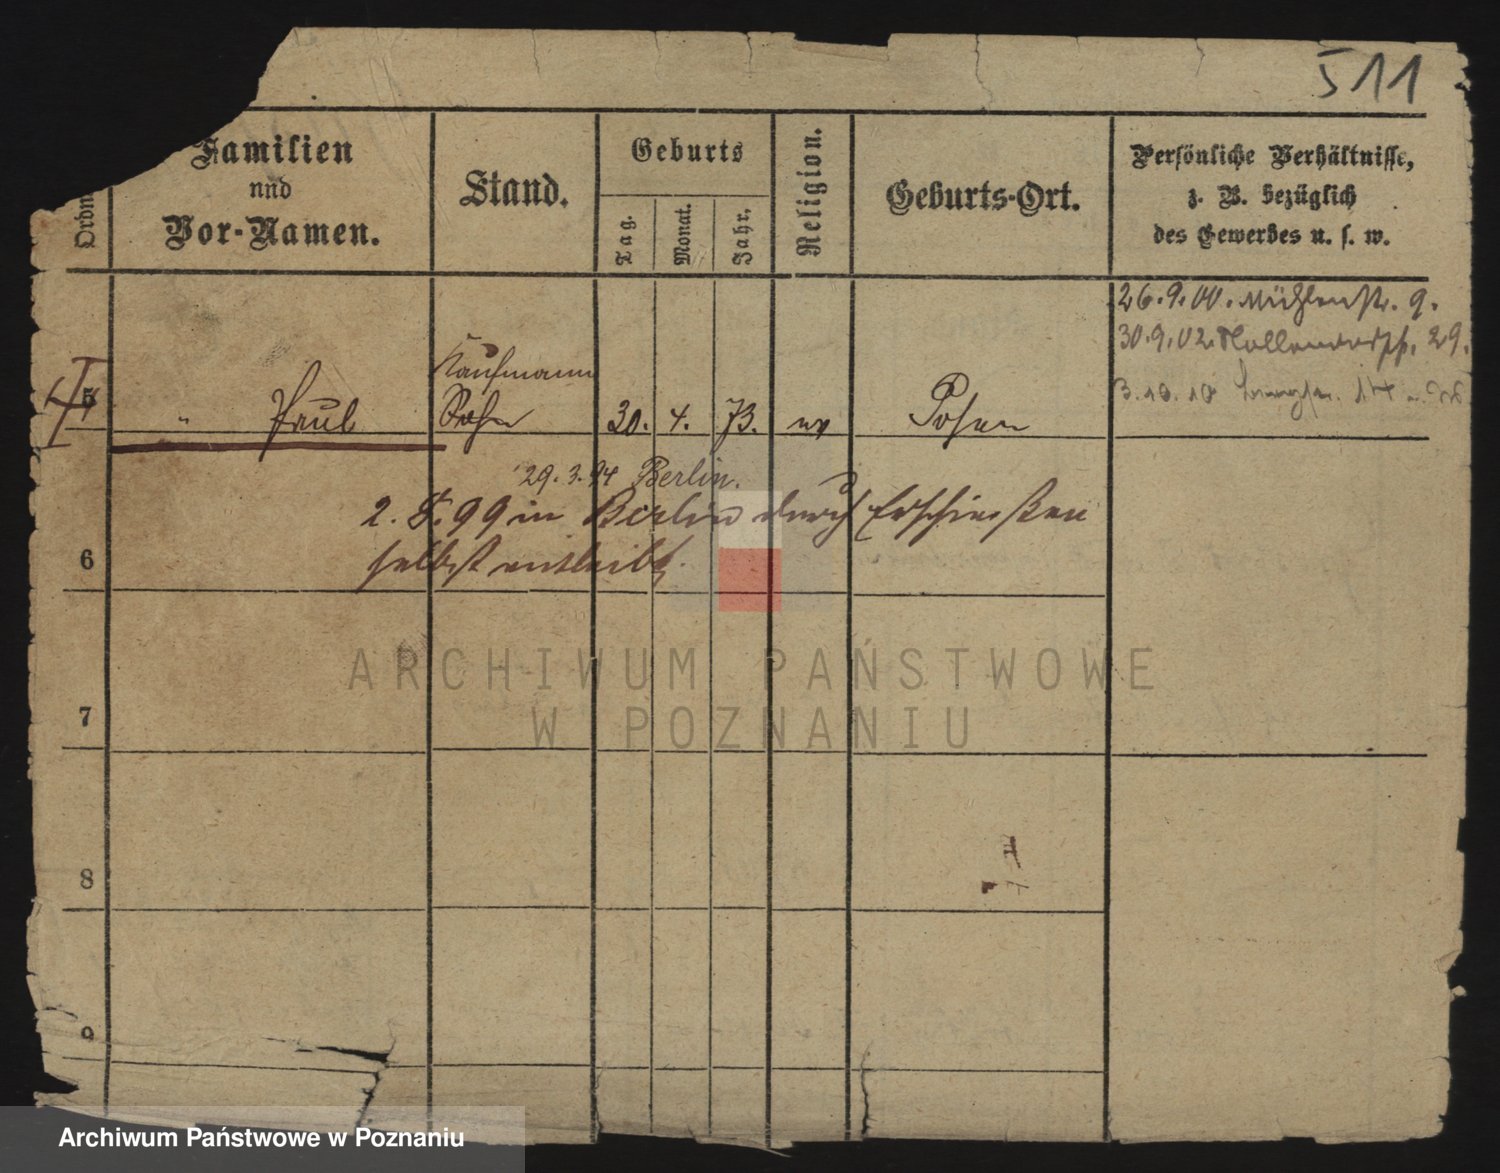 511
Ordn
Familien
und
Vor-Namen.
Stand.
Geburts
Tag.
Monat.
Jahr.
Religion.
Geburts-Ort.
Persönliche Verhältnisse,
z. B. bezüglich
des Gewerbes u. s. w.
26.9.00. Mühlenstr. 9.
30.9.02. 29.
3.10.10
5 " Paul Kaufmann Sohn 30. 4. 73. Posen
29.3.94 Berlin.
2. 99 in Berlin durch Erschießen
6 selbst entleibt.
ARCHIWUM PAŃSTWOWE
W POZNANIU
7
8
9
Archiwum Państwowe w Poznaniu